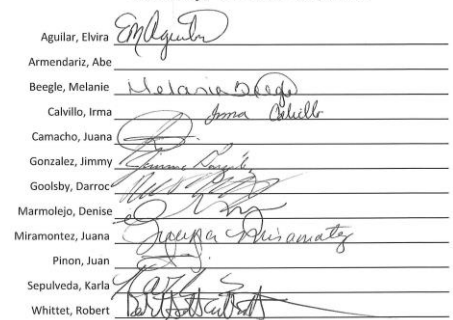 Aguilar, Elvira EMAguilar
Armendariz, Abe
Beegle, Melanie Melanie Beegle
Calvillo, Irma Irma Calvillo
Camacho, Juana
Gonzalez, Jimmy Jimmy Gonzalez
Goolsby, Darroc
Marmolejo, Denise
Miramontez, Juana Juana Miramontez
Pinon, Juan
Sepulveda, Karla
Whittet, Robert